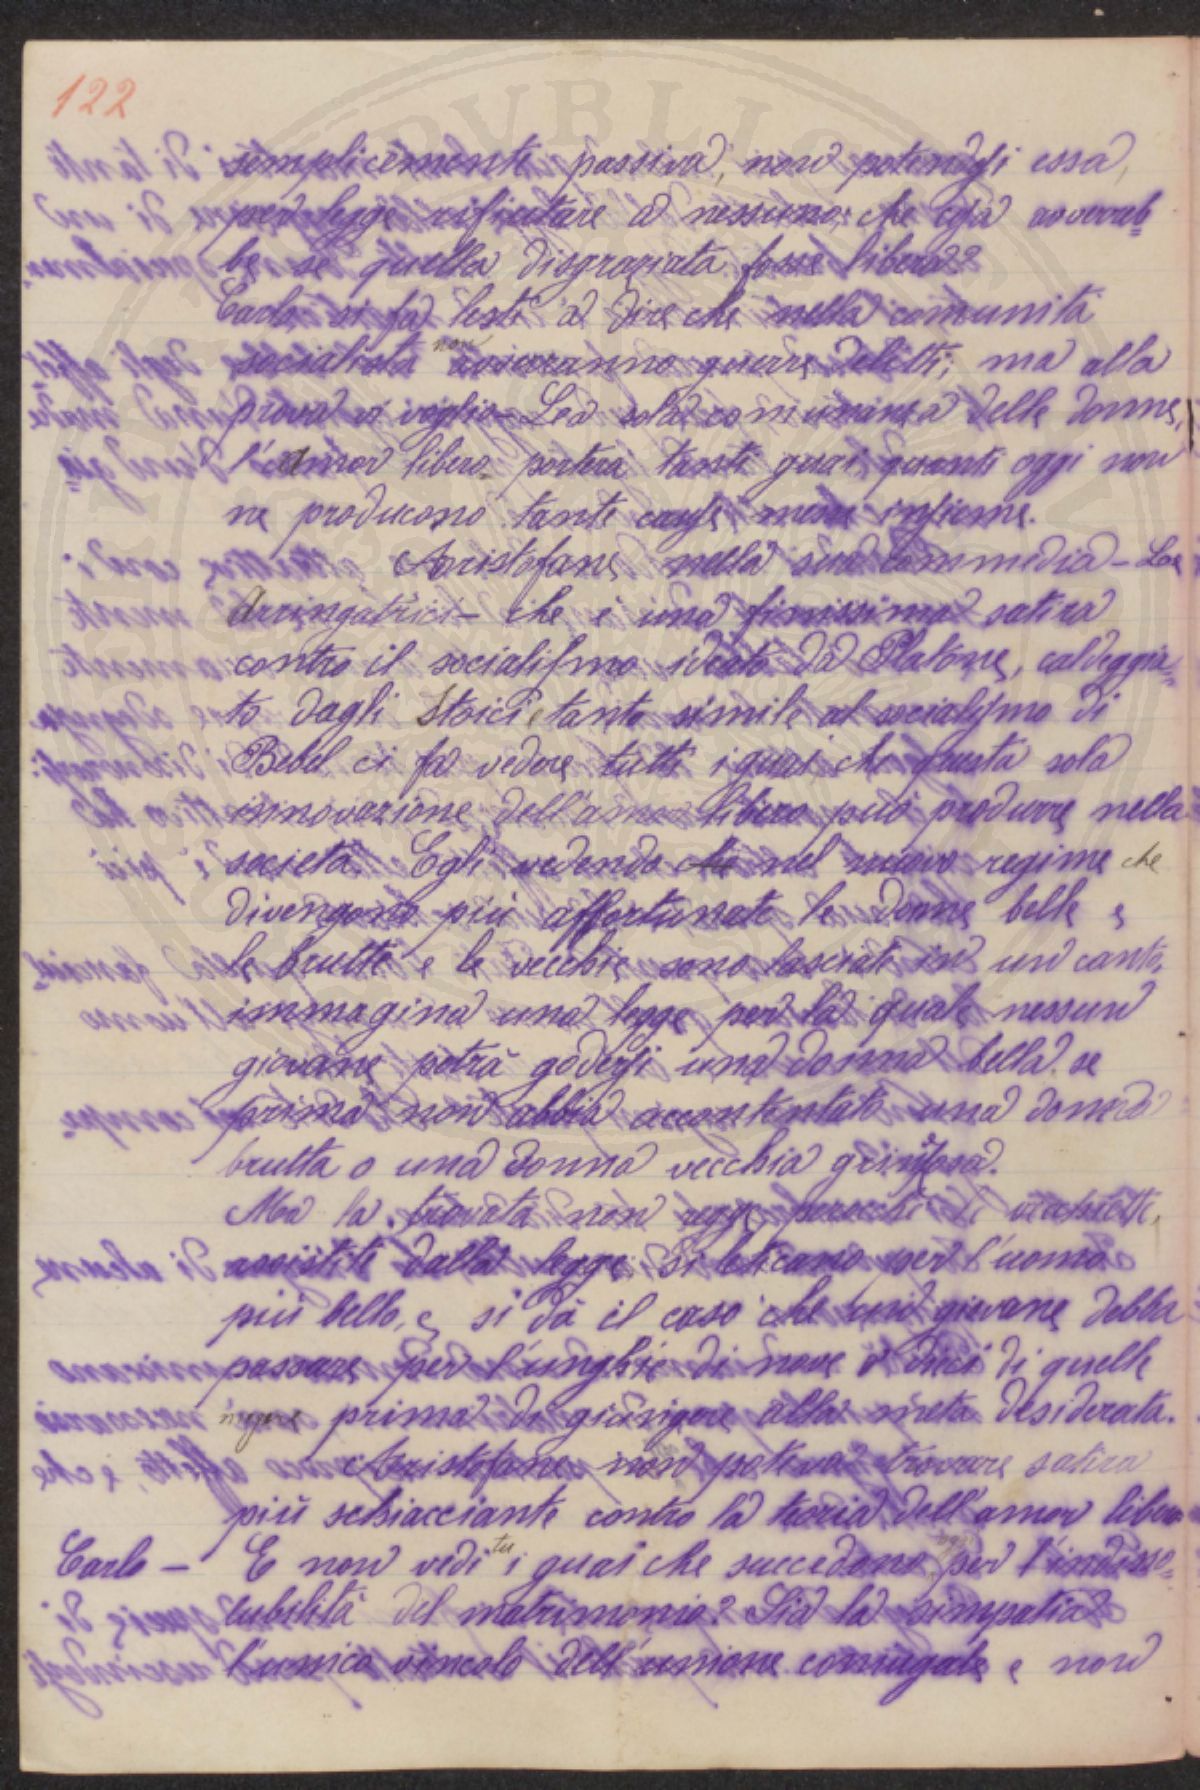 122
semplicemente passiva, non potendosi essa,
per legge rifiutare a nessuno; che cosa avverreb=
be se quella disgraziata fosse libera?
Carlo si fa lesti a dire che nella comunità
socialista non avverranno guerre, delitti; ma alla
prova vi voglio. La sola comunanza delle donne,
l'amor libero porterà tanti guai, quanti oggi non
ne producono tante cause messe insieme.
Aristofane, nella sua commedia - Le
Arringatrici - che è una finissima satira
contro il socialismo ideato da Platone, caldeggia=
to dagli Stoici e tanto simile al socialismo di
Bebel ci fa vedere tutti i guai che questa sola
innovazione dell'amor libero può produrre nella
società. Egli vedendo che nel nuovo regime che
divengono più affortunate le donne belle e
le brutte e le vecchie sono lasciate in un canto,
immagina una legge per la quale nessun
giovane potrà godersi una donna bella se
prima non abbia accontentato una donna
brutta o una donna vecchia grinzosa.
Ma la trovata non regge perocché le vecchiette,
assistite dalla legge, si leticano per l'uomo
più bello, e si dà il caso che un giovane debba
passare per l'unghie di nove o dieci di quelle
megere prima di giungere alla meta desiderata.
Aristofane non poteva trovare satira
più schiacciante contro la teoria dell'amor libero
Carlo - E non vedi tu i guai che succedono oggi per l'indisso=
lubilità del matrimonio? Sia la simpatia
l'unico vincolo dell'unione coniugale e non